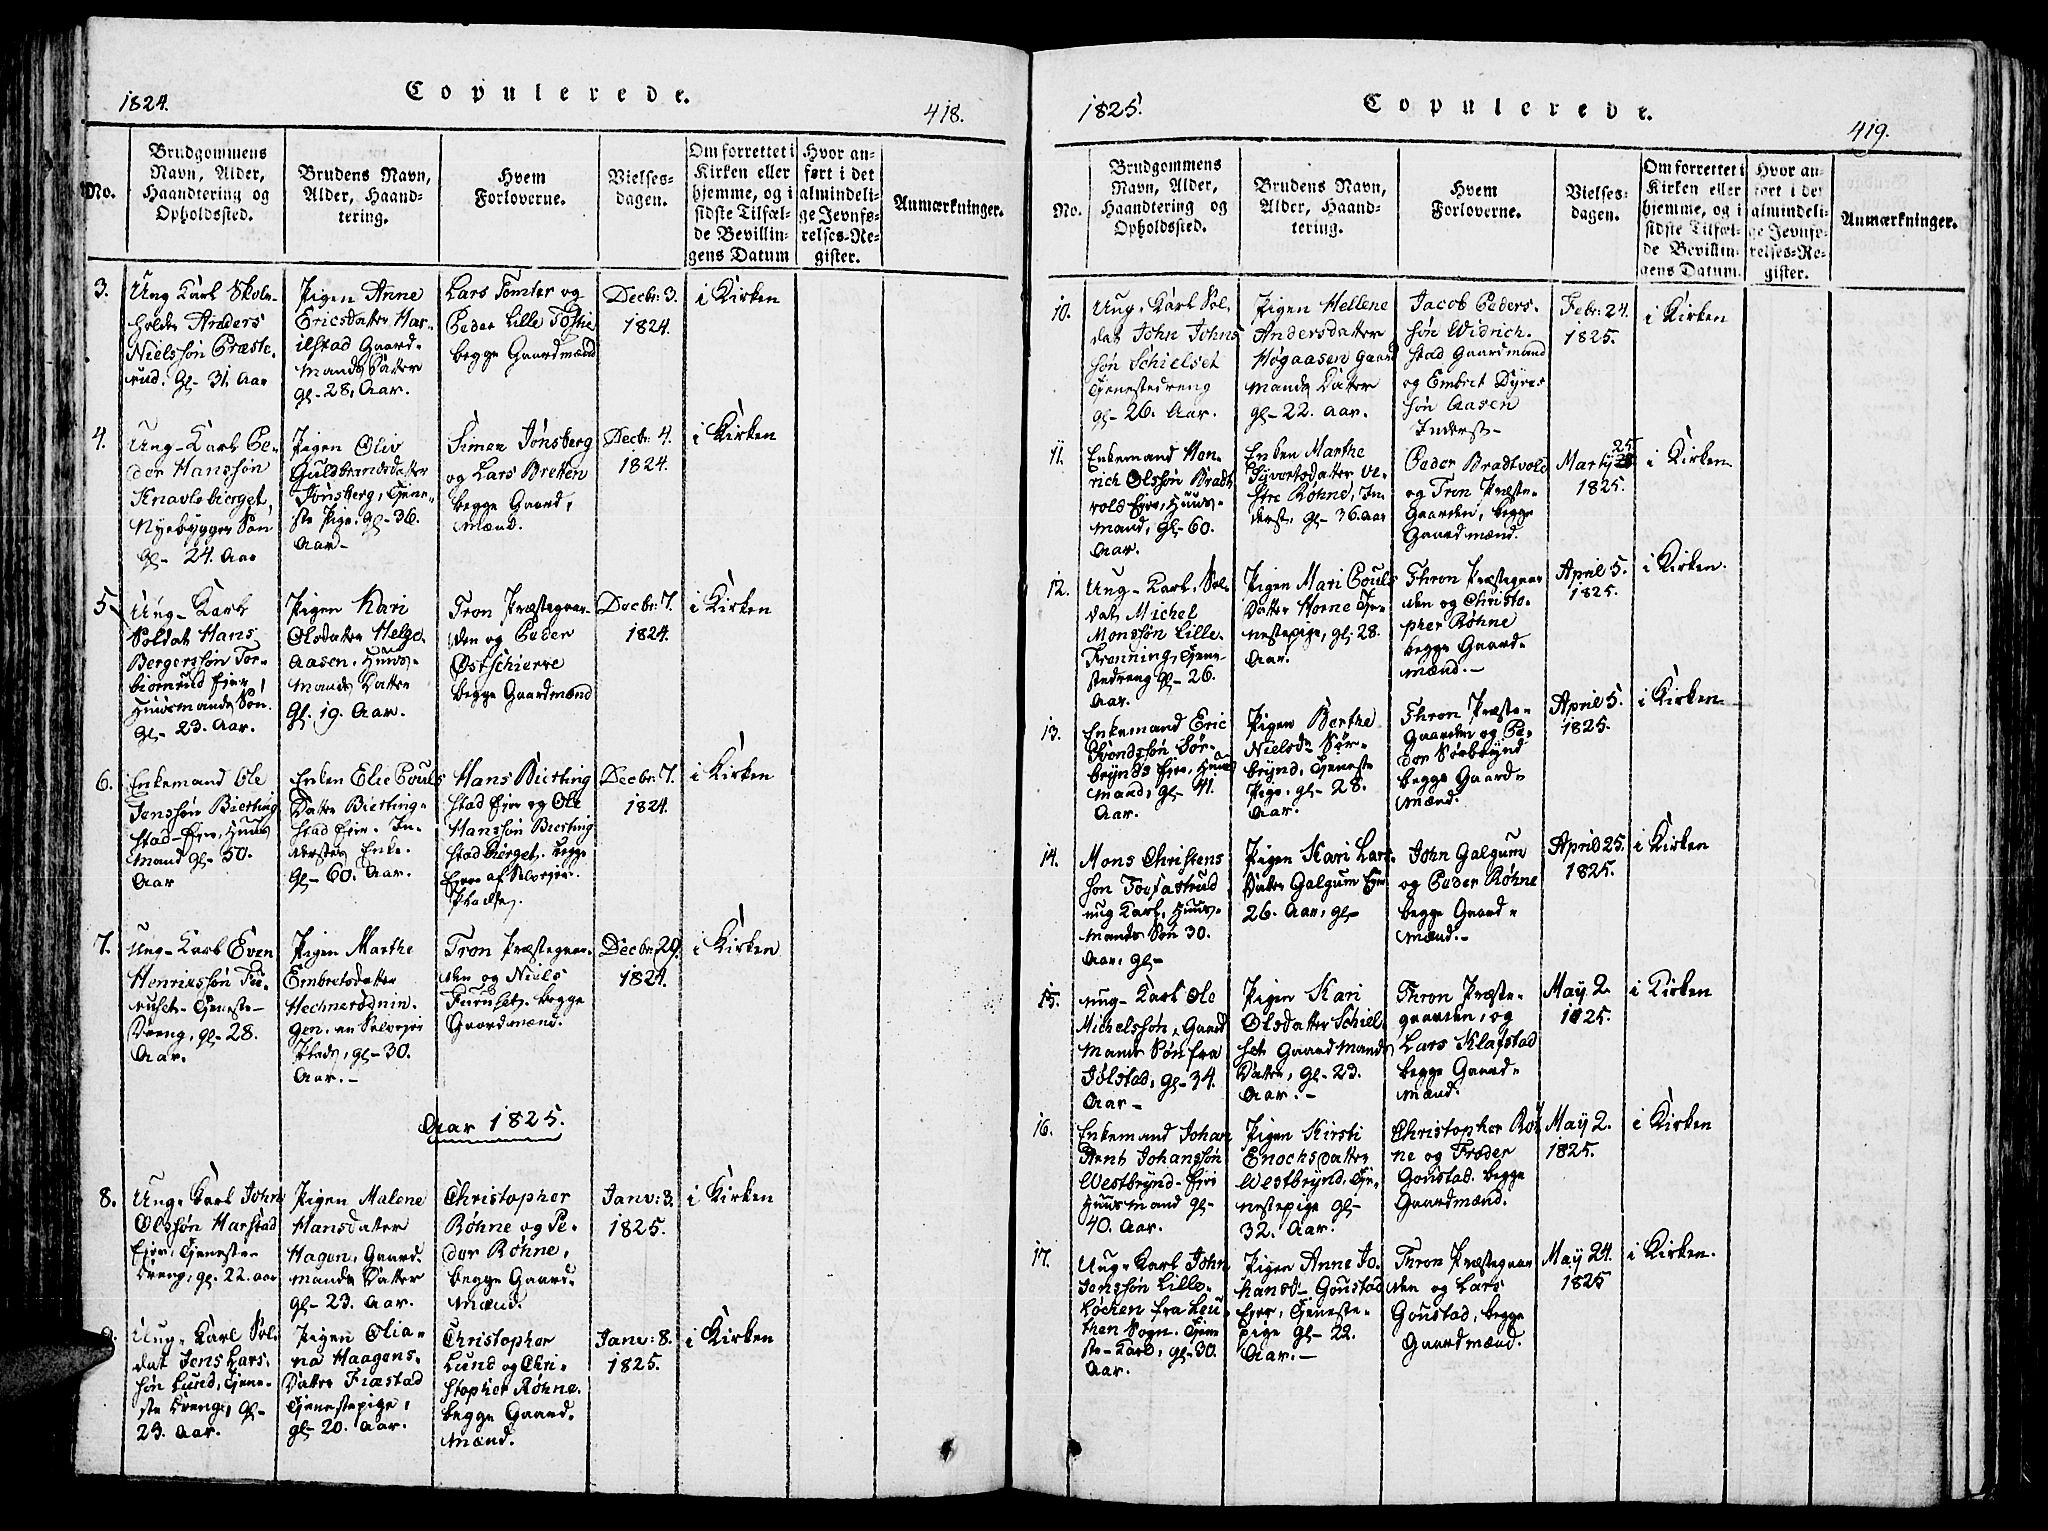 1824.
Copulerede.
418.
No.
Brudgommens
Navn, Alder,
Haandtering og
Opholdssted.
Brudens Navn,
Alder, Haand-
tering.
Hvem
Forloverne.
Vielses-
dagen.
Om forrettet i
Kirken eller
hjemme, og i
sidste Tilfæl-
de Bevillin-
gens Datum
Hvor an-
ført i det
almindeli-
ge Jevnfø-
relses-Re-
gister.
Anmærkninger.
3.
Ung Karl Skole-
holder Anders
Nielssøn Præste-
rud. gl- 31. Aar
Pigen Anne
Ericsdatter Har-
ilstad Gaard-
mands Datter
gl- 28, Aar.
Lars Tomter og
Peder Lille Tøftie
begge Gaardmænd
Decbr: 3.
1824.
i Kirken
4.
Ung- Karl Pe-
der Hanssøn
Knavlebierget,
Nyebygger Søn
gl- 24. Aar
Pigen Oliv
Guldbrandsdatter
Jønsberg, Tjene-
ste Pige, gl- 36.
Aar-
Simen Jønsberg
og Lars Bretten
begge Gaard-
mænd.
Decbr: 4.
1824.
i Kirken
5.
Ung- Karl
Soldat Hans
Bergerssøn Tor-
biørnrud Eier,
Huusmands Søn.
gl- 23. Aar.
Pigen Kari
Olsdatter Helge-
aasen, Huus-
mands Datter
gl. 19. Aar.
Tron Præstegaar-
den og Peder
Østschierre
begge Gaardmænd
Decbr: 7.
1824.
i Kirken
6.
Enkemand Ole
Jenssøn Bierting
stad- Eier, Huus
mand gl- 50.
Aar
Enken Elie Pouls
Datter Bierting-
stad Eier. In-
derstes Enke.
gl- 60. Aar.
Hans Bierting
stad Eier og Ole
Hanssøn Bierting
stad Bierget. begge
Eiere af Selveier-
Pladse.
Decbr: 7.
1824.
i Kirken
7.
Ung- Karl Even
Henrikssøn Fu-
ruset- Tjeneste-
Dreng, gl- 28.
Aar.
Pigen Marthe
Embretsdatter
Hechnerødnin-
gen, en Selveier
Plads, gl- 30.
Aar.-
Tron Præstegaar-
den og Niels
Furuset, begge
Gaardmænd.
Decbr: 29.
1824.
i Kirken
Aar 1825.
8.
Ung- Karl John
Olssøn Harstad
Eier, Tjeneste-
dreng, gl. 22. aar
Pigen Malene
Hansdatter
Hagen, Gaard-
mands Datter
gl- 23. Aar.
Christopher
Røhne og Pe-
der Røhne,
begge Gaard-
mænd.
Janv: 3.
1825.
i Kirken
9.
Ung- Karl Sol-
dat Jens Lars-
søn Lund, Tjene-
ste dreng, gl-
23. Aar.
Pigen Olia-
na Haagens-
Datter Fiæstad
Tjenestepige,
gl- 20. Aar.
Christopher
Lund og Chri-
stopher Røhne.
begge Gaard-
mænd.
Janv: 8.
1825.
i Kirken
1825.
Copulerede.
419.
No.
Brudgommens
Navn, Alder,
Haandtering og
Opholdssted.
Brudens Navn,
Alder, Haand-
tering.
Hvem
Forloverne.
Vielses-
dagen.
Om forrettet i
Kirken eller
hjemme, og i
sidste Tilfæl-
de Bevillin-
gens Datum.
Hvor an-
ført i det
almindeli-
ge Jevnfø-
relses-Re-
gister.
Anmærkninger.
10.
Ung- Karl Sol-
dat John Johns
søn Schielset
Tjenestedreng
gl- 26. Aar.
Pigen Hellene
Andersdatter
Høgaasen Gaard
mands Datter
gl- 22. Aar.
Jacob Peders-
søn Widrich-
stad Gaardmand
og Embret Dyres
søn Aasen
Inderst-
Febr: 24.
1825.
i Kirken
11.
Enkemand Hen-
rich Olssøn Bradt
vold Eier, Huus-
mand, gl- 60.
Aar.
Enken Marthe
Syvertsdatter Ve-
stre Røhne, In-
derst, gl- 36. Aar
Peder Bradtvold
og Tron Præste-
Gaarden, begge
Gaardmænd.
Marty 25
1825.
i Kirken.
12.
Ung- Karl, Sol-
dat Michel
Monssøn Lille-
Krønning, Tjene-
stedreng gl- 26.
Aar.
Pigen Mari Pouls
Datter Horne Tje-
nestepige, gl- 28.
Aar.
Thron Præstegaar
den og Christo-
pher Røhne
begge Gaard-
mænd.-
April 5.
1825.
i Kirken.
13.
Enkemand Eric
Svendssøn Sør-
brynds Eier, Huus
mand, gl- 41.
Aar.
Pigen Berthe
Nielsd- Sør-
brynd, Tjeneste
Pige, gl- 28.
Aar.
Thron Præste-
Gaarden og Pe-
der Sørbrynd
begge Gaard-
mænd.
April 5.
1825.
i Kirken.
14.
Mons Christens
søn Toufastrud
ung Karl, Huus-
mands Søn 30.
Aar, gl-
Pigen Kari Lars-
Datter Galgum Eier
26. Aar, gl-
John Galgum
og Peder Røhne
begge Gaard-
mænd.-
April 25.
1825.
i Kirken
15.
Ung- Karl Ole
Michelssøn, Gaard
mands Søn fra
Jølstad, gl- 34.
Aar-
Pigen Kari
Olsdatter Schiel-
set Gaardmands
Datter, gl- 23.
Aar.-
Thron Præste-
gaarden, og
Lars Klafstad
begge Gaard-
mænd.
May 2.
1825.
i Kirken
16.
Enkemand Johan
Arent Johanssøn
Westbrynd- Eier
Huusmand gl-
40. Aar.
Pigen Kirsti
Enochsdatter
Westbrynd, Tje-
nestepige gl-
32. Aar.
Christopher Røh
ne og Frøder
Goustad. begge
Gaardmænd.
May 2.
1825.
i Kirken
17.
Ung- Karl John
Jenssøn Lille-
Løchen fra Leu-
then Sogn. Tjene
ste- Karl, gl- 30.
Aar.
Pigen Anne Jo-
hansd- Goustad
Eier, Tjeneste-
pige gl- 22.
Aar.-
Thron Præstegaar
den og Lars
Goustad, begge
Gaardmænd.
May 24.
1825
i Kirken.